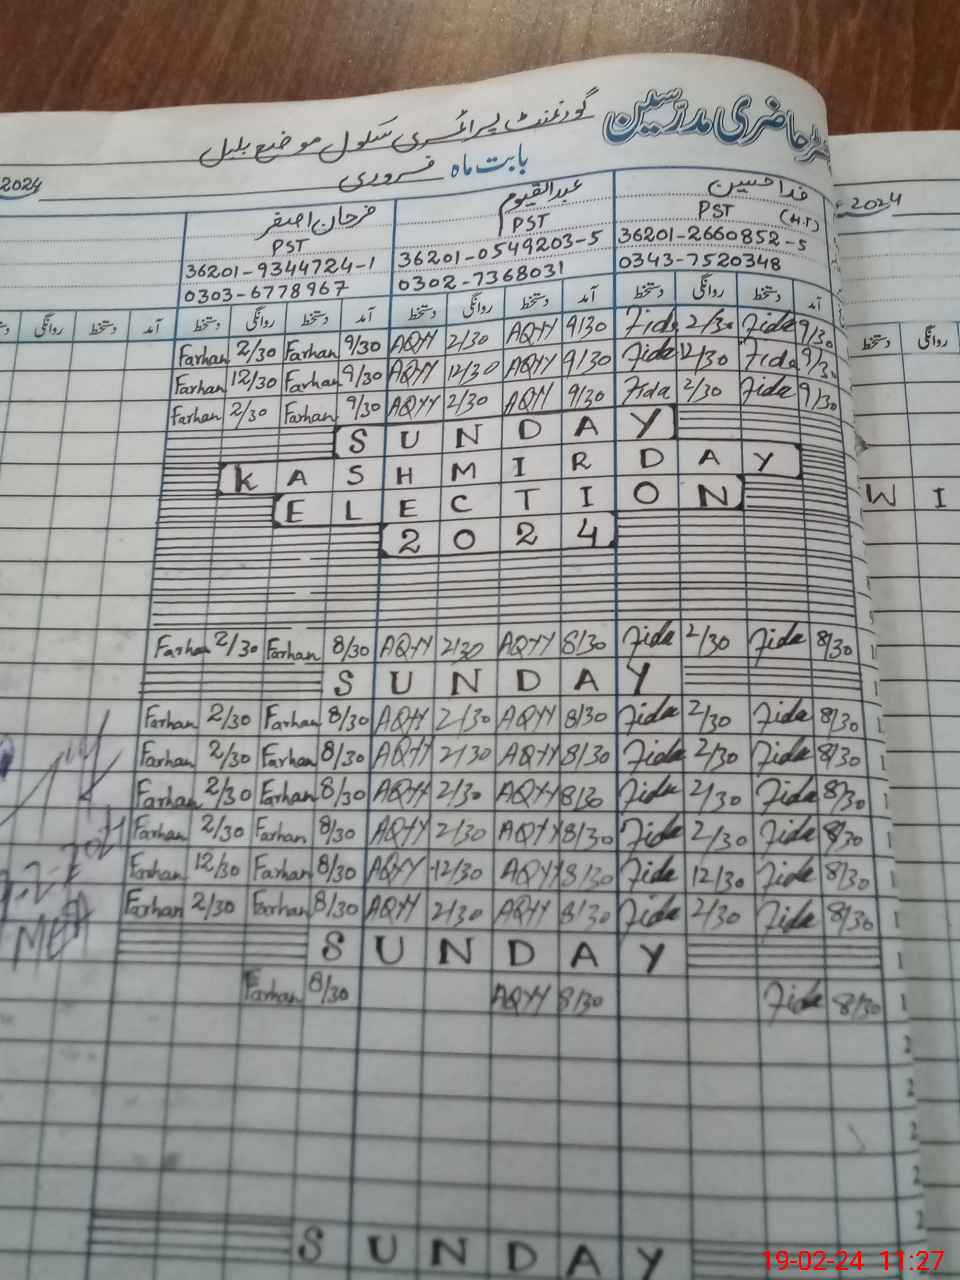 رجسٹر حاضری مدرسین گورنمنٹ پرائمری سکول موضع بلیل
بابت ماہ فروری
2024
2024
فدا حسین عبدالقیوم فرحان اصغر
PST (H.T) PST PST
36201-2660852-5 36201-0549203-5 36201-9344724-1
0343-7520348 0302-7368031 0303-6778967
آمد دستخط روانگی دستخط آمد دستخط روانگی دستخط آمد دستخط روانگی دستخط آمد دستخط روانگی
دستخط روانگی
Farhan 2/30 Farhan 9/30 AQYY 2/30 AQYY 9/30 Fida 2/30 Fida 9/30
Farhan 12/30 Farhan 9/30 AQYY 12/30 AQYY 9/30 Fida 12/30 Fida 9/30
Farhan 2/30 Farhan 9/30 AQYY 2/30 AQYY 9/30 Fida 2/30 Fida 9/30
SUNDAY
KASHMIR DAY
ELECTION
2024
W I
Farhan 2/30 Farhan 8/30 AQYY 2/30 AQYY 8/30 Fida 2/30 Fida 8/30
SUNDAY
Farhan 2/30 Farhan 8/30 AQYY 2/30 AQYY 8/30 Fida 2/30 Fida 8/30
Farhan 2/30 Farhan 8/30 AQYY 2/30 AQYY 8/30 Fida 2/30 Fida 8/30
Farhan 2/30 Farhan 8/30 AQYY 2/30 AQYY 8/30 Fida 2/30 Fida 8/30
Farhan 2/30 Farhan 8/30 AQYY 2/30 AQYY 8/30 Fida 2/30 Fida 8/30
Farhan 12/30 Farhan 8/30 AQYY 12/30 AQYY 8/30 Fida 12/30 Fida 8/30
Farhan 2/30 Farhan 8/30 AQYY 2/30 AQYY 8/30 Fida 2/30 Fida 8/30
MEA
SUNDAY
Farhan 8/30 AQYY 8/30 Fida 8/30
SUNDAY
19-02-24 11:27